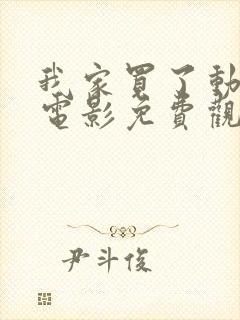 我家買了動
電影免費觀
尹斗俊